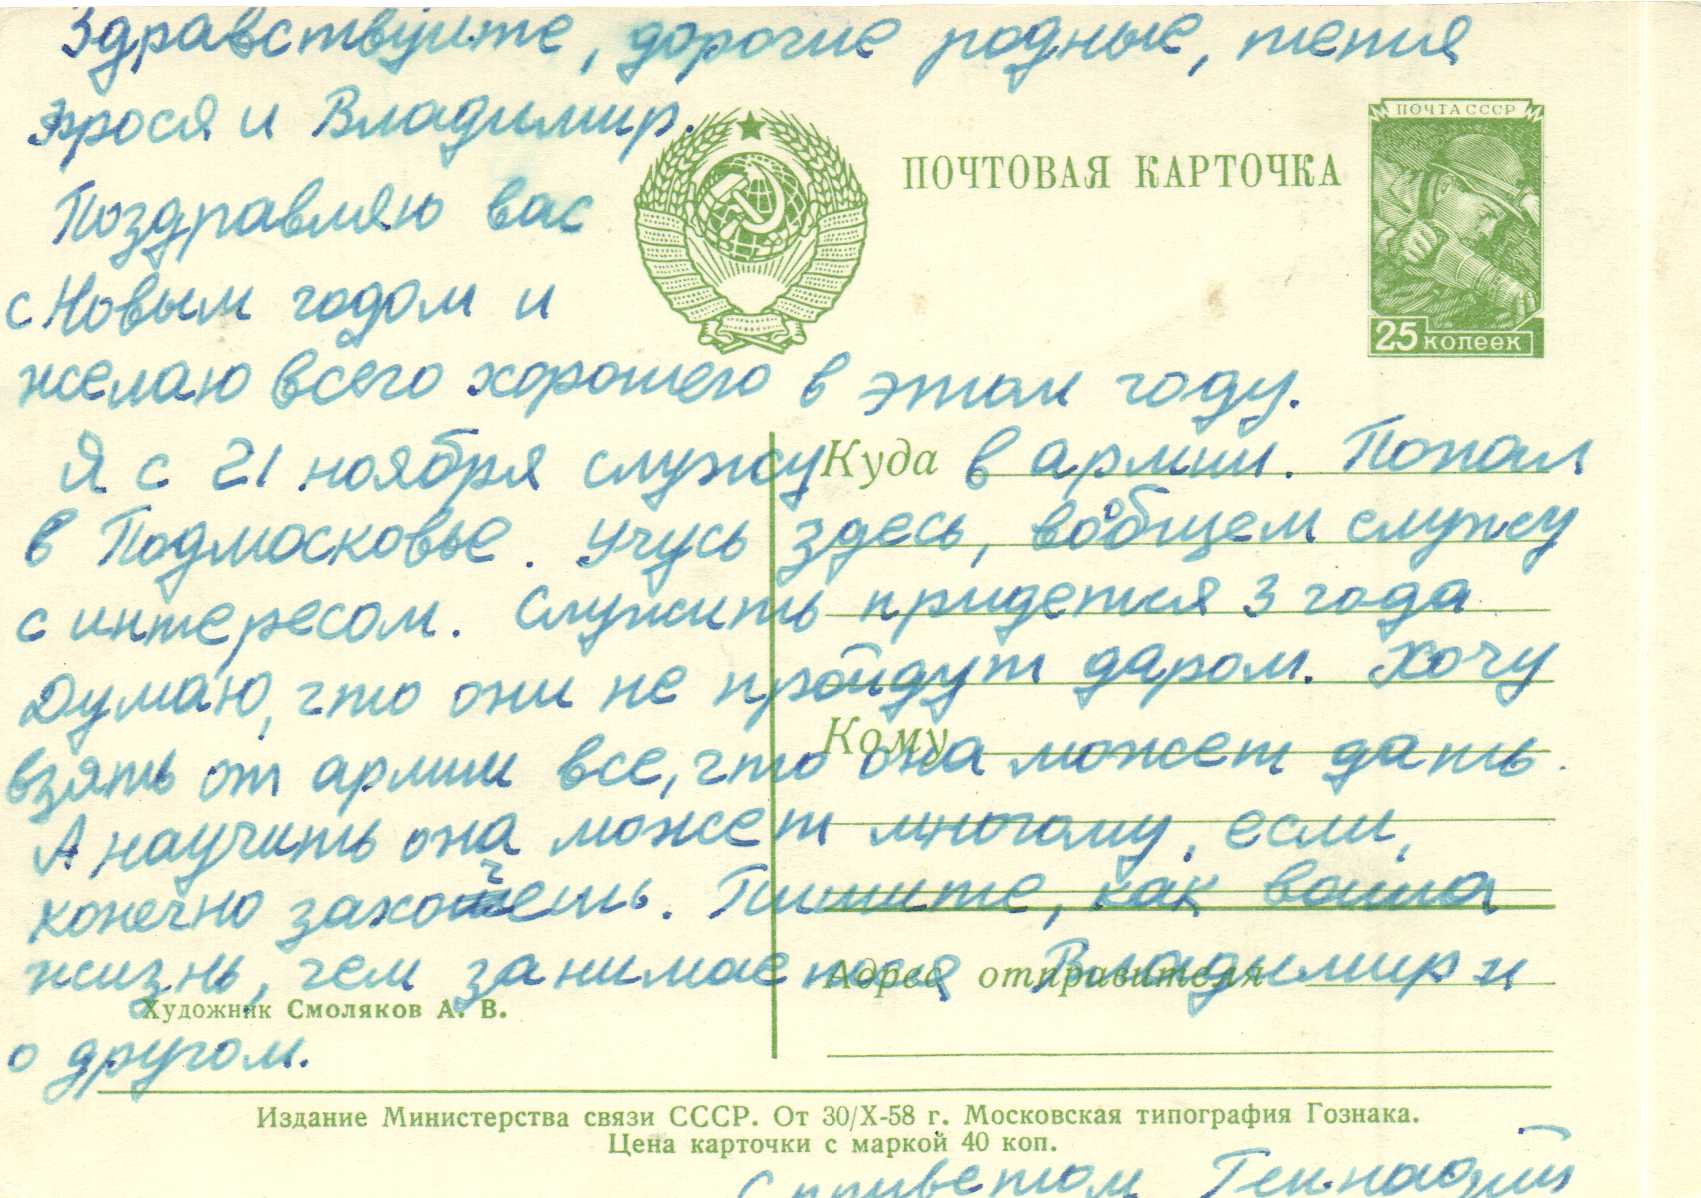 Здравствуйте, дорогие родные, тетя
Фрося и Владимир.
ПОЧТА СССР
ПОЧТОВАЯ КАРТОЧКА
25 копеек
Поздравляю вас
с Новым годом и
желаю всего хорошего в этом году.
Я с 21 ноября служу в армии. Попал
Куда
в Подмосковье. Учусь здесь, вообщем служу
с интересом. Служить придется 3 года
Думаю, что они не пройдут даром. Хочу
Кому
взять от армии все, что она может дать.
А научить она может многому, если,
конечно захочешь. Пишите, как ваша
жизнь, чем занимается Владимир и
Адрес отправителя
Художник Смоляков А. В.
о другом.
Издание Министерства связи СССР. От 30/X-58 г. Московская типография Гознака.
Цена карточки с маркой 40 коп.
С приветом Геннадий